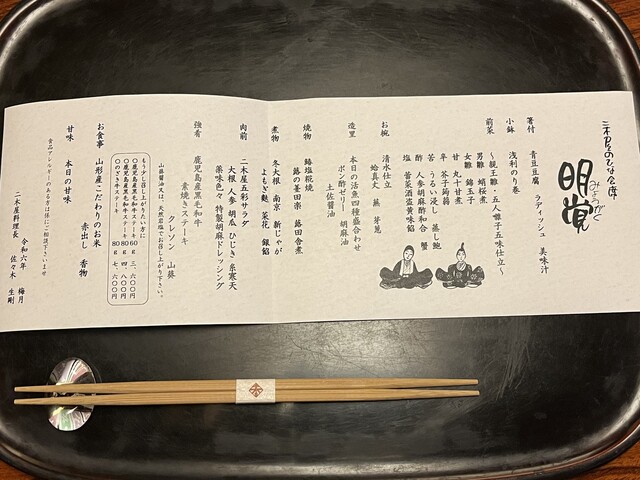 二木屋のひな会席
明覚
みょうがく
箸付 青豆豆腐 ラディッシュ 美味汁
小鉢 浅利のり巻
前菜 〜親王雛・五人囃子五味仕立〜
男雛 蛸桜煮
女雛 錦玉子
甘 丸十甘煮
辛 芥子蒟蒻 蒸し鮑
苦 うるい浸し
酢 人参胡麻酢和合 蟹
塩 蕾菜酒盗黄味餡
お椀 清水仕立
蛤真丈 蕨 芽葱
造里 本日の活魚四種盛合わせ
ポン酢ゼリー 胡麻油
土佐醤油
焼物 鰆塩糀焼
蕗の薹田楽 蕗田舎煮
煮物 冬大根 南京 新じゃが
よもぎ麩 菜花 銀餡
肉前 二木屋五彩サラダ
大根 人参 胡瓜 ひじき 糸寒天
薬味色々 特製胡麻ドレッシング
強肴 鹿児島産黒毛和牛
素焼きステーキ
クレソン 山葵
山葵醤油又は、天然岩塩でお召し上がり下さい。
もう少し召し上がりたい方に
〇鹿児島産黒毛和牛ステーキ 60g 三、六〇〇円
〇鹿児島産黒毛和牛ステーキ 80g 四、八〇〇円
〇のざき牛ステーキ 60g 七、六〇〇円
お食事 山形産こだわりのお米
赤出し 香物
甘味 本日の甘味
食品アレルギーのある方は係にご相談下さいませ
令和六年 梅月
二木屋料理長 佐々木 生剛